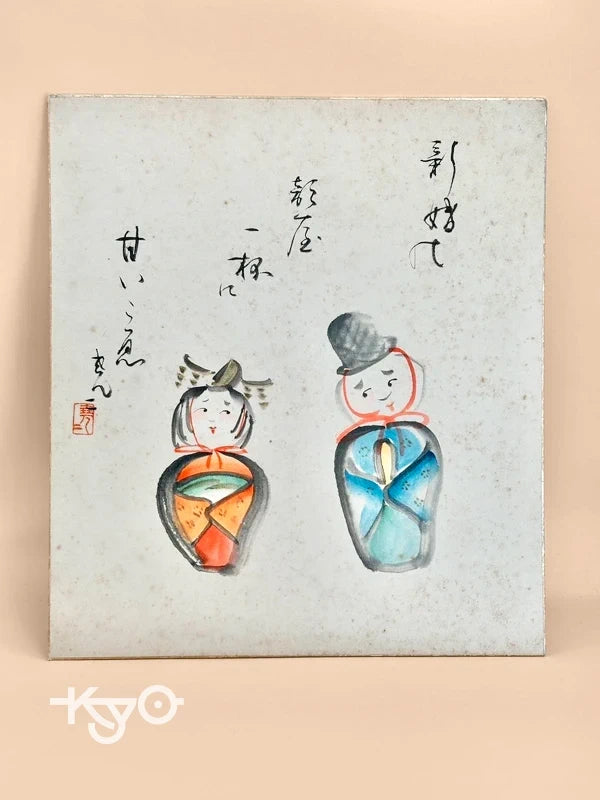 新婚の
部屋
一杯に
甘いこゑ
Kyo